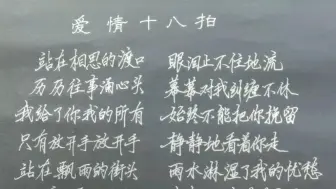 爱情十八拍
站在相思的渡口 眼泪止不住地流
历历往事涌心头 幕幕对我纠缠不休
我给了你我的所有 始终不能把你挽留
只有放开手放开手 静静地看着你走
站在飘雨的街头 雨水淋湿了我的忧愁